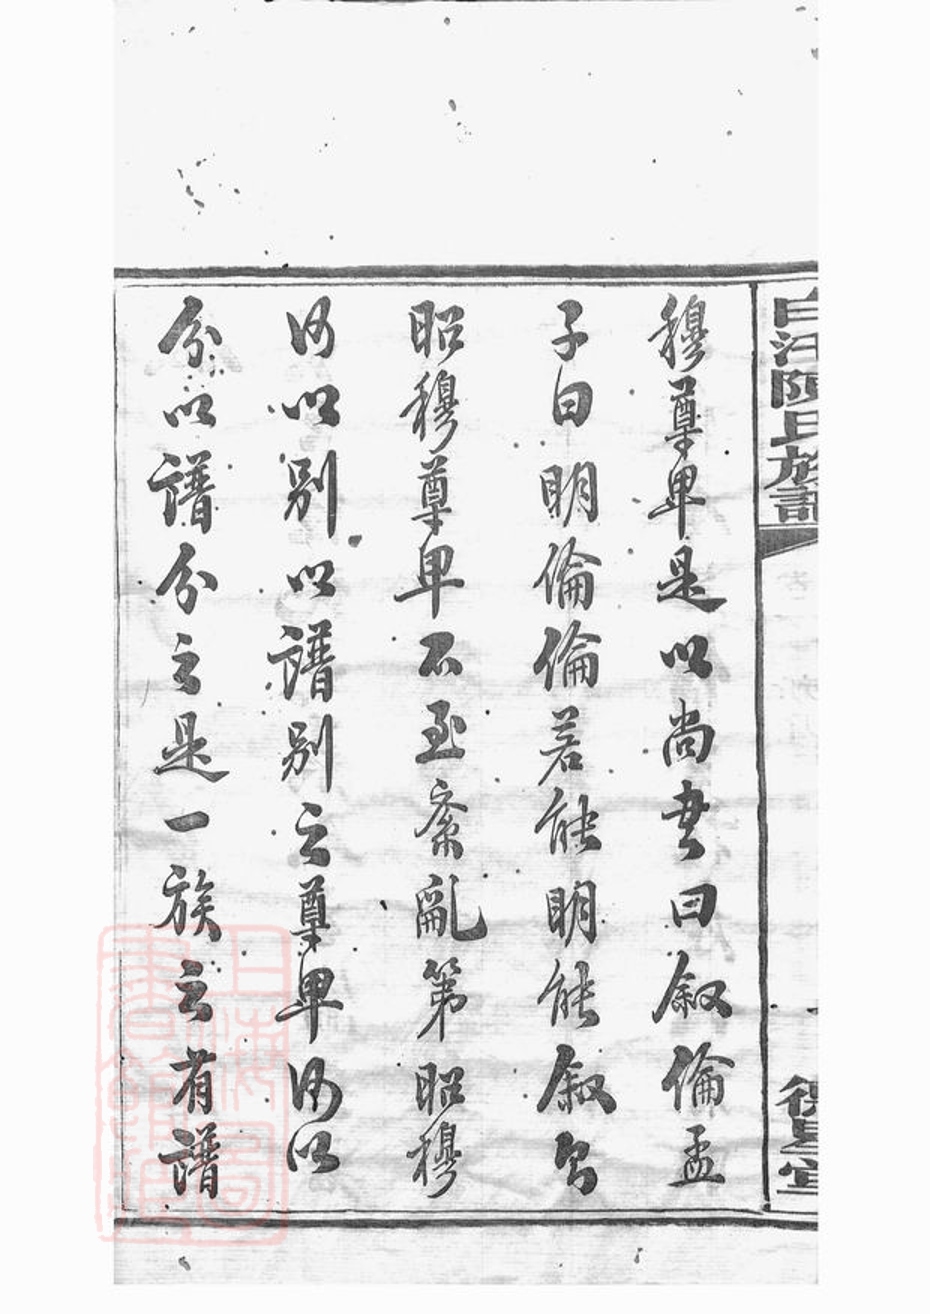 陳氏族譜
德星堂
穆尊卑是以尚書曰叙倫孟
子曰明倫倫若能明能叙
昭穆尊卑不至紊亂第昭穆
何以別以譜別之尊卑何以
分以譜分之是一族之有譜
上海圖書館藏